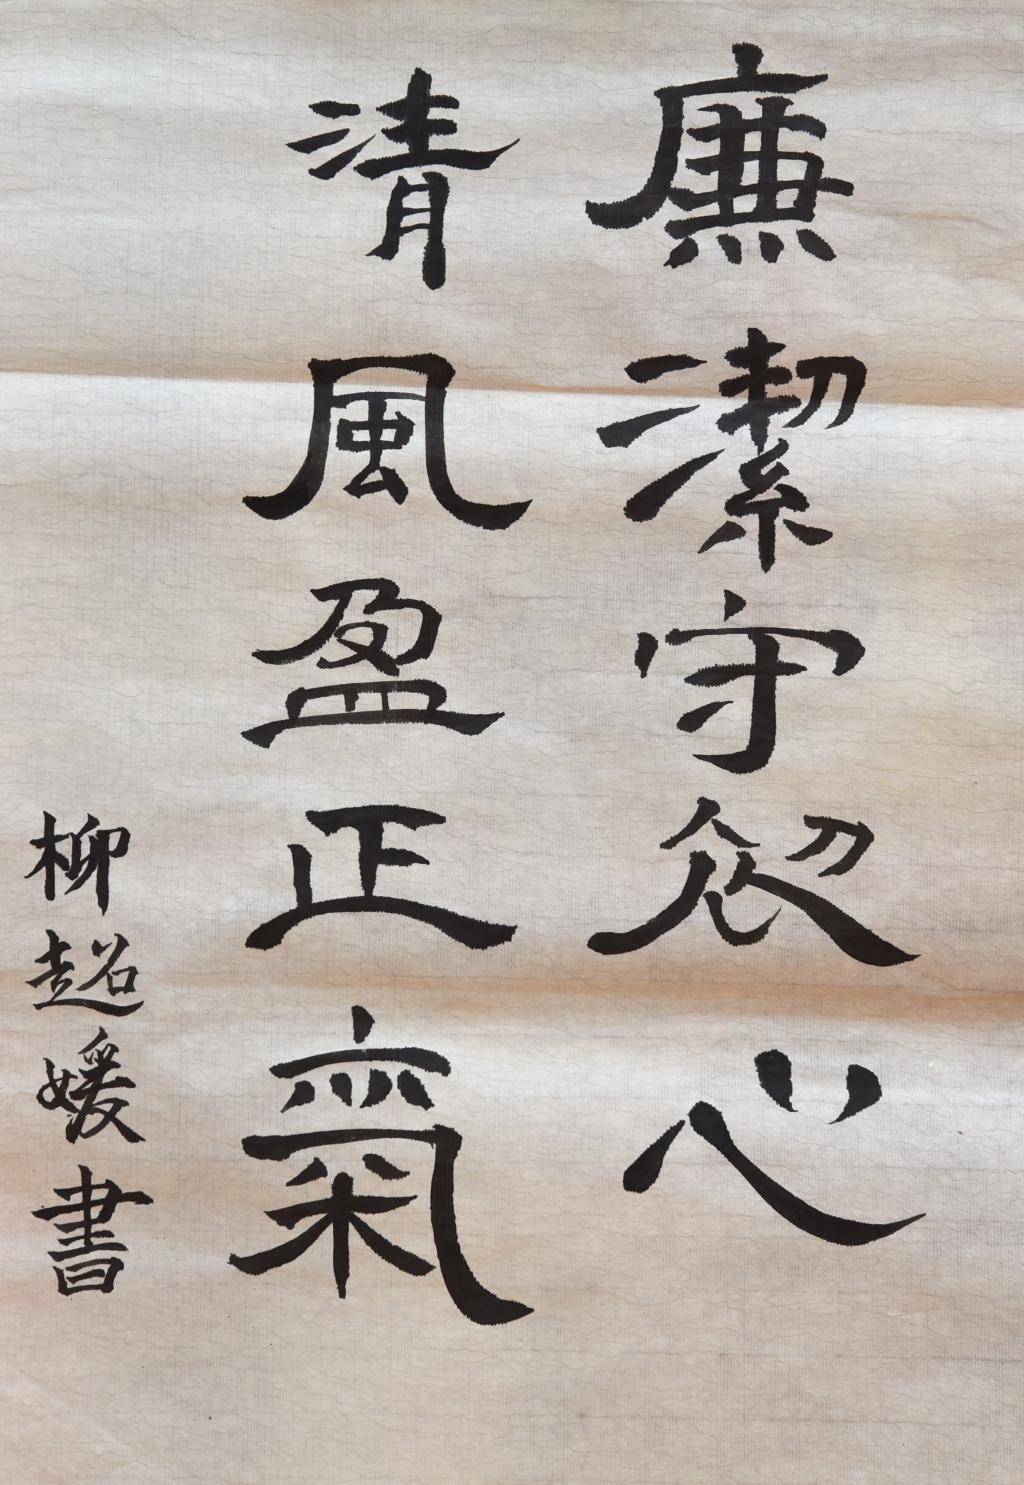 廉潔守初心
清風盈正氣
柳超媛書